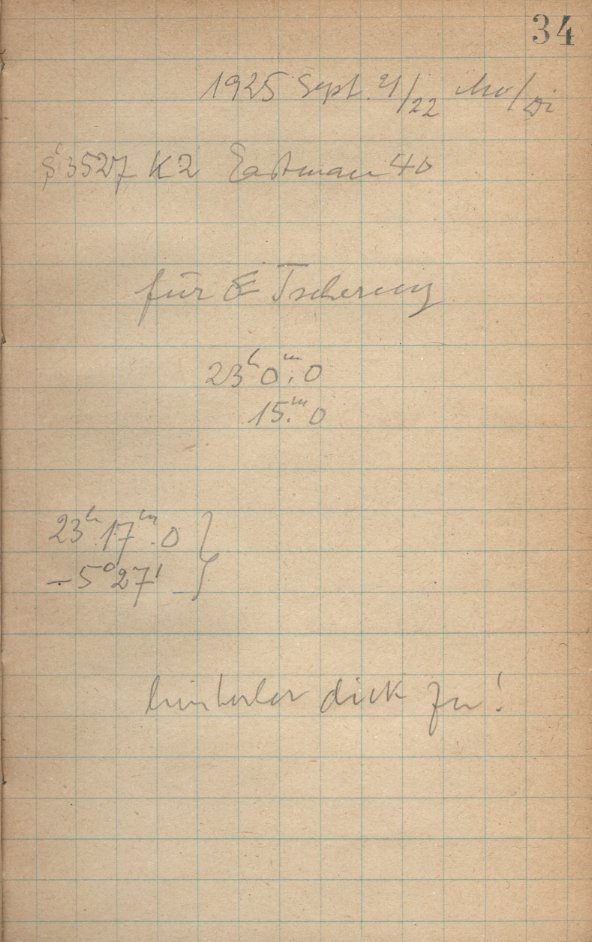 34
1925 Sept. 21/22 Mo/Di
3527 K2 Eastman 40
für E Tscherny
23ʰ 0ᵐ.0
15ᵐ.0
23ʰ 17ᵐ.0 }
-5° 27'
hinterher dick zu!